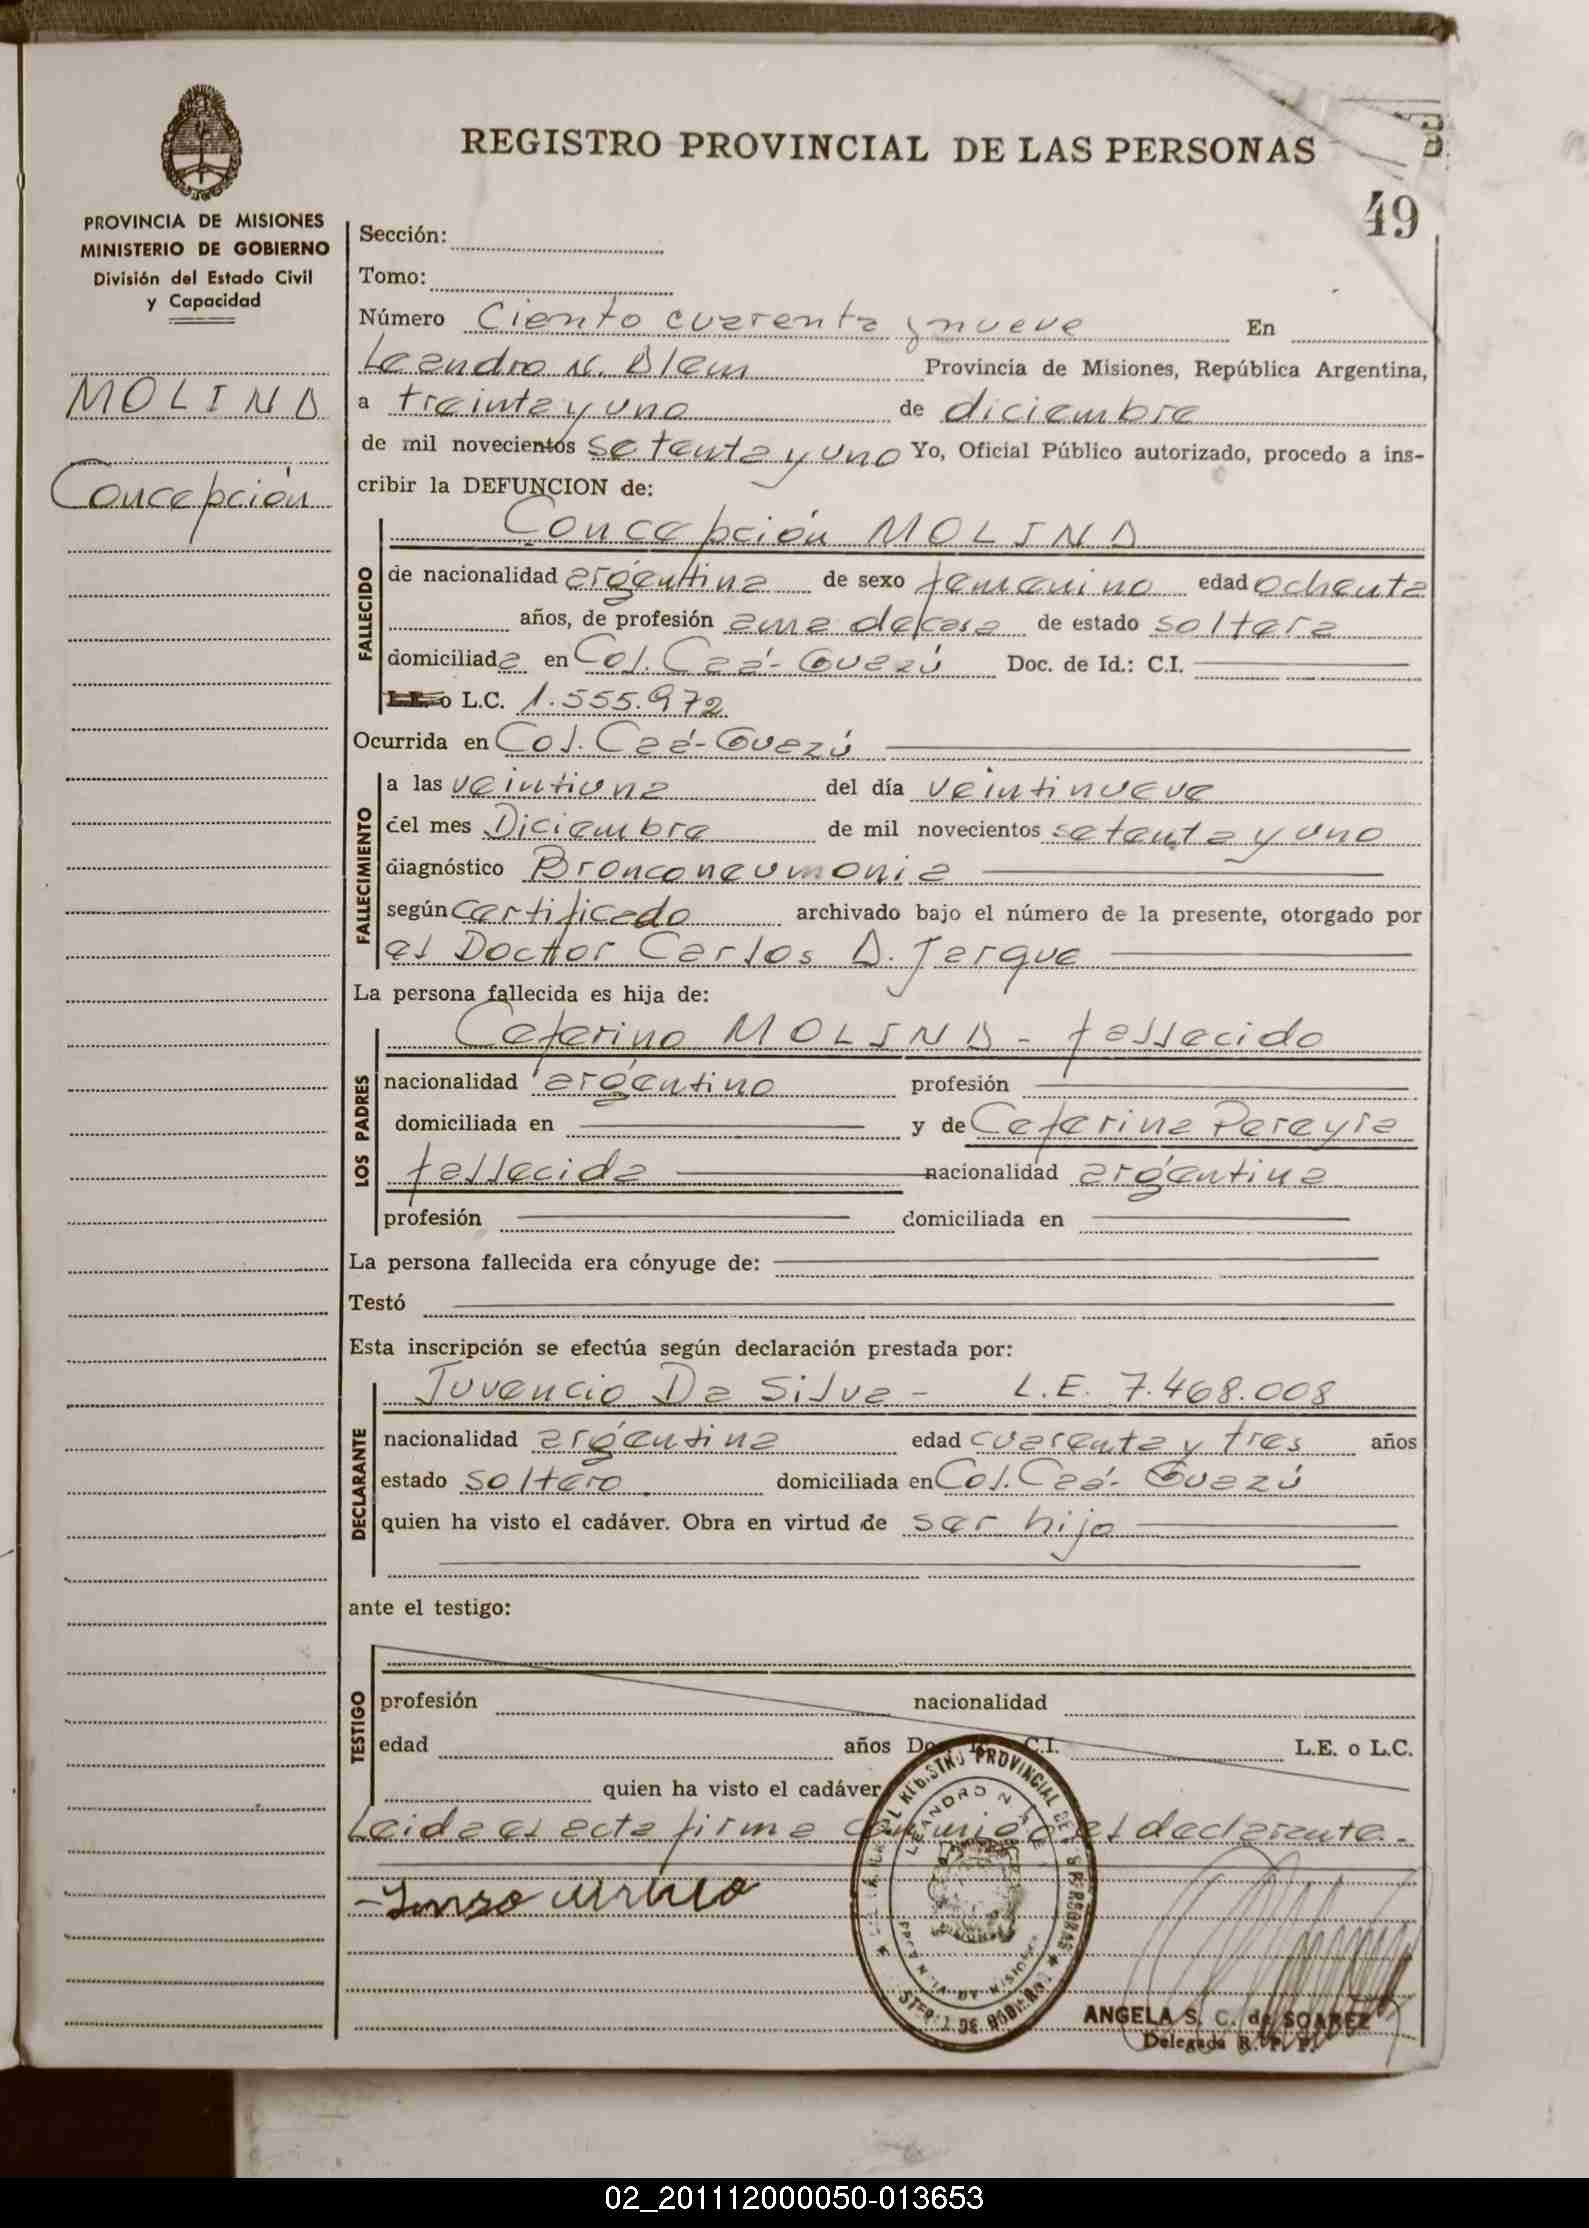 REGISTRO PROVINCIAL DE LAS PERSONAS
49
PROVINCIA DE MISIONES
MINISTERIO DE GOBIERNO
División del Estado Civil
y Capacidad
MOLINA
Concepción
Sección:
Tomo:
Número Ciento cuarenta y nueve En
Leandro N. Alem Provincia de Misiones, República Argentina,
a treinta y uno de diciembre
de mil novecientos setenta y uno Yo, Oficial Público autorizado, procedo a ins-
cribir la DEFUNCION de:
Concepción MOLINA
FALLECIDO
de nacionalidad argentina de sexo femenino edad ochenta
años, de profesión ama de casa de estado soltera
domiciliada en Col. Caá-Guazú Doc. de Id.: C.I.
L.E. o L.C. 1.555.972
Ocurrida en Col. Caá-Guazú
FALLECIMIENTO
a las veintiuna del día veintinueve
del mes Diciembre de mil novecientos setenta y uno
diagnóstico Bronconeumonia
según certificado archivado bajo el número de la presente, otorgado por
el Doctor Carlos A. Jarque
La persona fallecida es hija de:
LOS PADRES
Ceferino MOLINA - fallecido
nacionalidad argentino profesión
domiciliada en y de Ceferina Pereyra
fallecida nacionalidad argentina
profesión domiciliada en
La persona fallecida era cónyuge de:
Testó
Esta inscripción se efectúa según declaración prestada por:
DECLARANTE
Juvencio Da Silva - L.E. 7.468.008
nacionalidad argentina edad cuarenta y tres años
estado soltero domiciliada en Col. Caá-Guazú
quien ha visto el cadáver. Obra en virtud de ser hijo
ante el testigo:
TESTIGO
profesión nacionalidad
edad años Doc. C.I. L.E. o L.C.
quien ha visto el cadáver
Leida el acta firma conmigo el declarante.-
REGISTRO PROVINCIAL DE LAS PERSONAS
LEANDRO N. ALEM
ANGELA S. C. de SOAREZ
Delegada R. P. P.
02_201112000050-013653